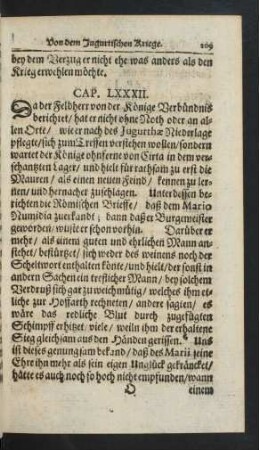 Von dem Jugurtischen Kriege. 209
bey dem Verzug er nicht ehe was anders als den
Krieg erwehlen möchte.
CAP. LXXXII.
Da der Feldherr von der Könige Verbündnis
berichtet / hat er nicht ohne Noth oder an al-
len Orte / wie er nach des Jugurthæ Niederlage
pflegte / sich zum Treffen verstehen wollen / sondern
wartet der Könige ohnferne von Cirta in dem ver-
schantzten Lager / und hielt für rathsam zu erst die
Mauren / als einen neuen Feind / kennen zu ler-
nen / und hernacher zuschlagen. Unterdessen be-
richten die Römischen Brieffe / daß dem Mario
Numidia zuerkandt; dann daß er Burgemeister
geworden / wuste er schon vorhin. Darüber er
mehr / als einem guten und ehrlichen Mann an-
stehet / bestürtzet / sich weder des weinens noch der
Scheltwort enthalten könte / und hielt / der sonst in
andern Sachen ein trefflicher Mann / bey solchem
Verdruß sich gar zu weichmütig / welches ihm et-
liche zur Hoffarth rechneten / andere sagten / es
wäre das redliche Blut durch zugefügten
Schimpff erhitzet, viele / weiln ihm der erhaltene
Sieg gleichsam aus den Händen gerissen. Uns
ist dieses genungsam bekand / daß des Marii seine
Ehre ihn mehr als sein eigen Unglück gekräncket /
hätte es auch noch so hoch nicht empfunden / wann
O einem